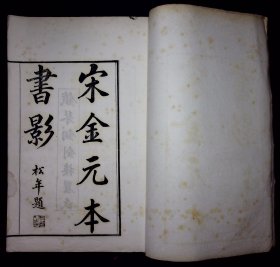 宋金元本
書影
松年題